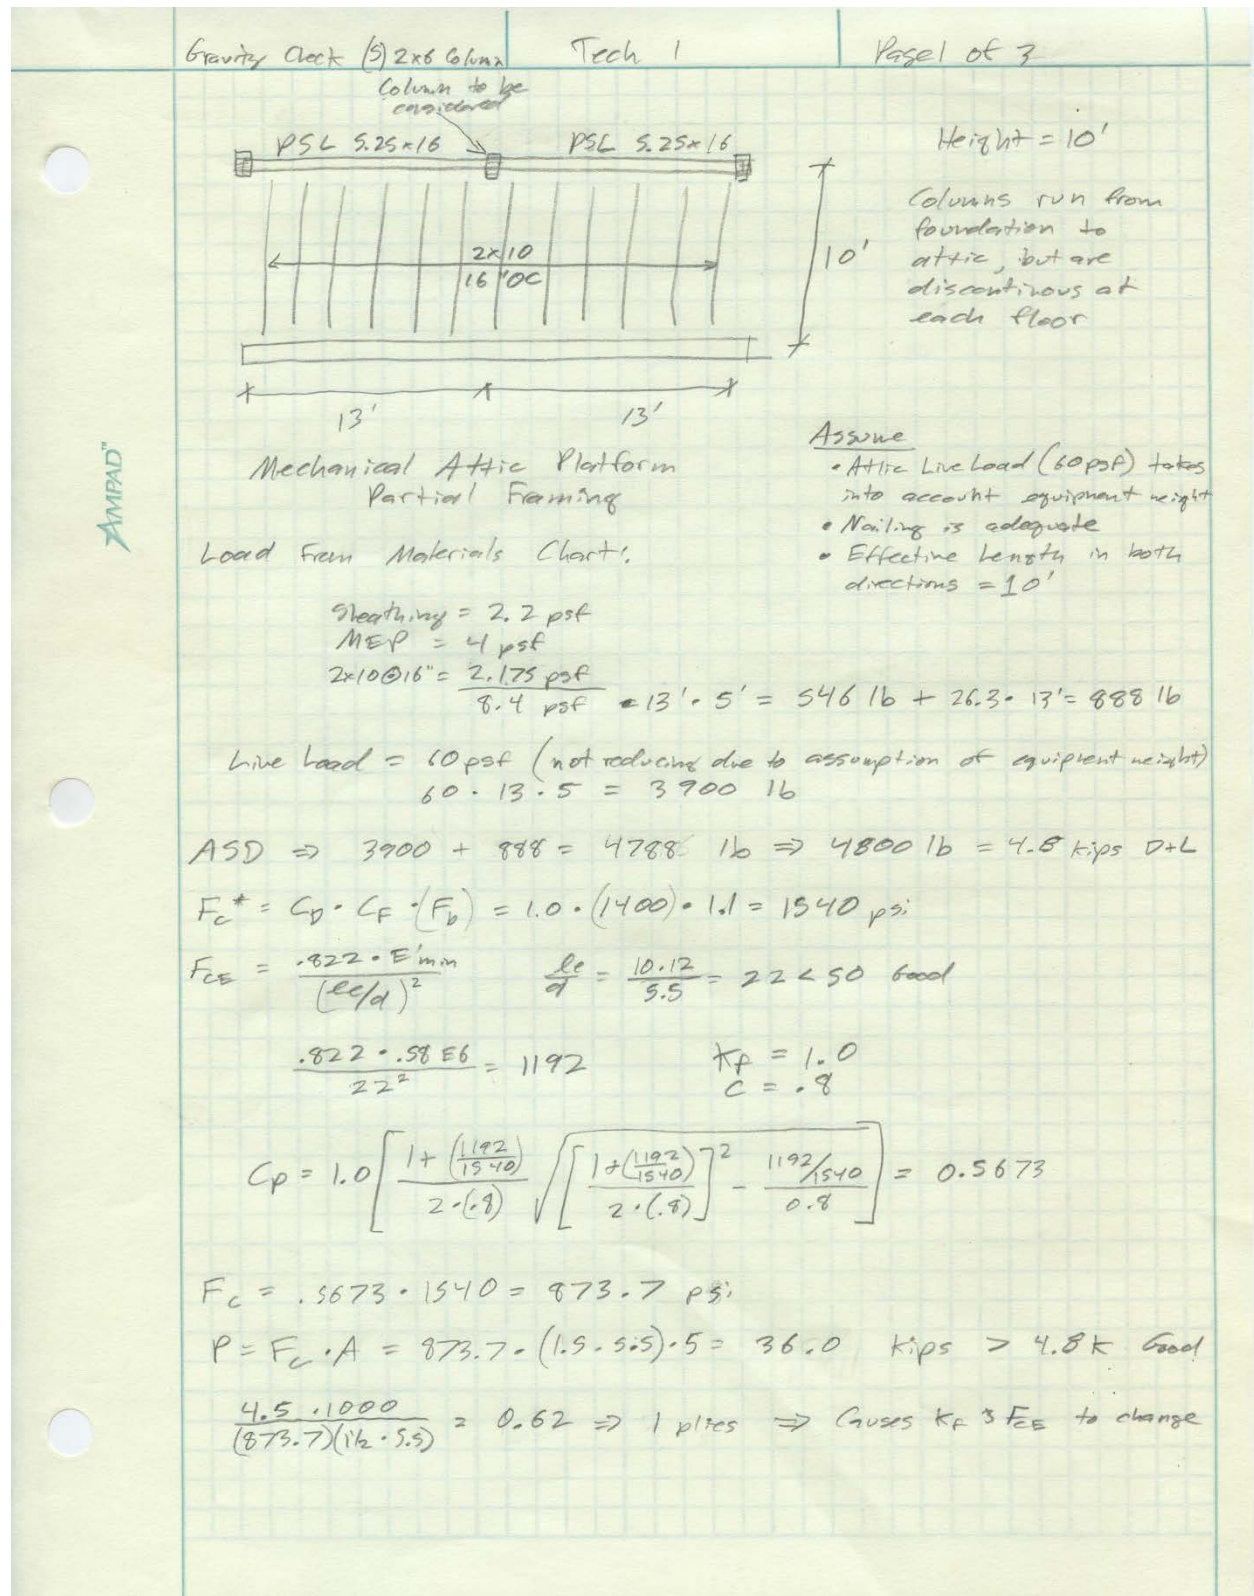 Gravity Check (5) 2x6 Column
Tech 1
Page 1 of 3
Column to be
considered
PSL 5.25x16
PSL 5.25x16
Height = 10'
Columns run from
foundation to
attic, but are
discontinous at
each floor
2x10
16"OC
10'
13'
13'
Mechanical Attic Platform
Partial Framing
Assume
• Attic Live Load (60psf) takes
into account equipment weight
• Nailing is adequate
• Effective Length in both
directions = 10'
AMPAD™
Load From Materials Chart:
Sheathing = 2.2 psf
MEP = 4 psf
2x10@16" = 2.175 psf
8.4 psf • 13' • 5' = 546 lb + 26.3 • 13' = 888 lb
Live Load = 60psf (not reducing due to assumption of equipment weight)
60 • 13 • 5 = 3900 lb
ASD ⇒ 3900 + 888 = 4788 lb ⇒ 4800 lb = 4.8 kips D+L
Fc* = CD • CF • (Fb) = 1.0 • (1400) • 1.1 = 1540 psi
FCE = .822 • E'min / (le/d)² le/d = 10.12 / 5.5 = 22 < 50 Good
.822 • .58E6 / 22² = 1192 Kf = 1.0
c = .8
Cp = 1.0 [ 1+(1192/1540) / 2•(.8) √[ 1+(1192/1540) / 2•(.8) ]² - 1192/1540 / 0.8 ] = 0.5673
Fc = .5673 • 1540 = 873.7 psi
P = Fc • A = 873.7 • (1.5 • 5.5) • 5 = 36.0 kips > 4.8k Good
4.5 • 1000 / (873.7)(1½ • 5.5) = 0.62 ⇒ 1 plies ⇒ Causes Kf & FCE to change